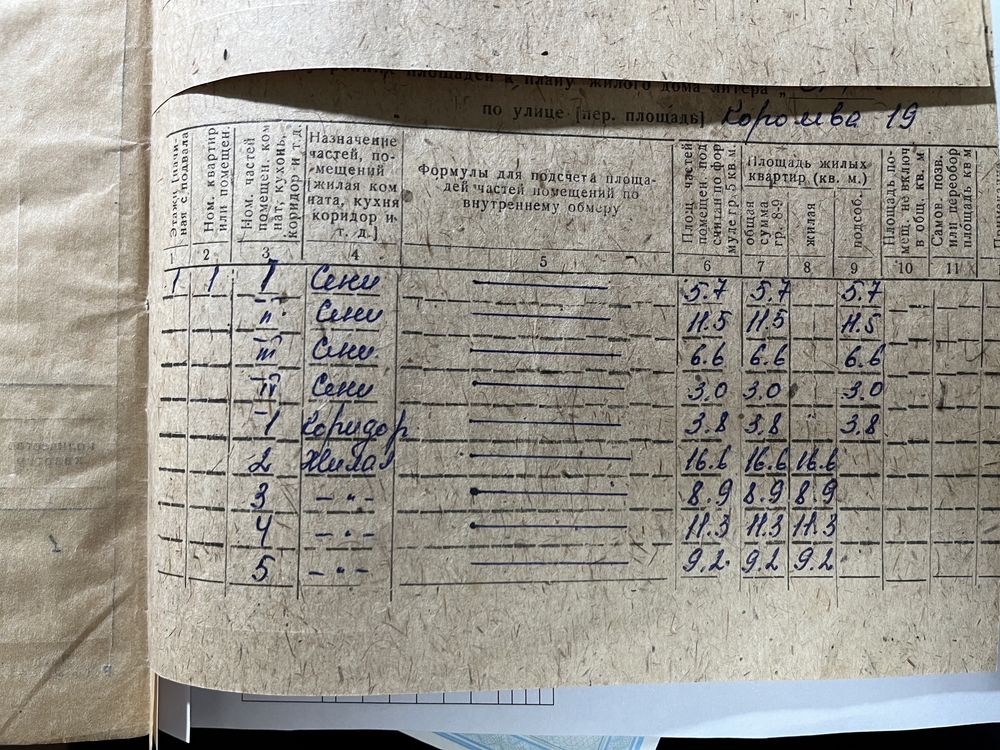 площадей к плану жилого дома литера „
по улице [пер. площадь] Королева 19
Этажи, начиная с подвала
Ном. квартир или помещен.
Ном. частей помещен. комнат, кухонь, коридор и т. д.
Назначение частей, помещений [жилая комната, кухня коридор и т. д.]
Формулы для подсчета площадей частей помещений по внутреннему обмеру
Площ. частей помещен. подсчитан по формуле гр. 5 кв. м.
Площадь жилых квартир (кв. м.)
общая сумма гр. 8-9
жилая
подсоб.
Площадь помещ. не включ в общ. кв. м
Самов. позв. или переобор площадь кв м
1 2 3 4 5 6 7 8 9 10 11
1 1 I Сени 5.7 5.7 5.7
II Сени 11.5 11.5 11.5
III Сени 6.6 6.6 6.6
IV Сени 3.0 3.0 3.0
1 Коридор 3.8 3.8 3.8
2 Жилая 16.6 16.6 16.6
3 –"– 8.9 8.9 8.9
4 –"– 11.3 11.3 11.3
5 –"– 9.2 9.2 9.2